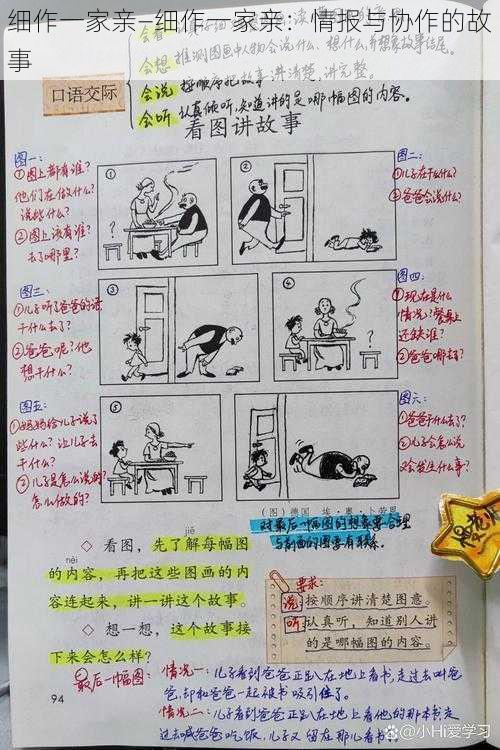 细作一家亲—细作一家亲：情报与协作的故
事
会想
推测图画中人物会说什么、想什么,并想象故事结尾。
口语交际
会说
按顺序把故事讲清楚、讲完整。
会听
认真倾听,知道讲的是哪幅图的内容。
看图讲故事
图一：
①图上都有谁?
他们在做什么?
说些什么?
②图上没有谁?
去了哪里?
①
?
②
图二：
①儿子在干什么?
②爸爸会说什么?
图三：
①儿子听了爸爸的话
干什么去了?
②爸爸呢?他
想干什么?
③
④
?
图四：
①现在是什么
情况?餐桌上
还缺谁?
②爸爸哪去了?
图五：
①妈妈给儿子说了
些什么?让儿子去
干什么?
②儿子是怎么说的?
怎么做的?
⑤
图六：
①爸爸干什么去了?
②儿子会怎么说
又会发生什么事?
(图)德国 埃·奥·卜劳恩
对最后一幅图的想象要合理
与前面的图要有联系。
jiě
◇ 看图，先了解每幅图
nèi
的内容，再把这些图画的内
容连起来，讲一讲这个故事。
◇ 想一想，这个故事接
下来会怎么样?
要求：
说 按顺序讲清楚图意。
听 认真听，知道别人讲
的是哪幅图的内容。
94
最后一幅图：
情况一：儿子看到爸爸正趴在地上看书,走过去叫爸
爸,却和爸爸一起被书吸引住了。
情况二：儿子看到爸爸正趴在地上看他的那本书,走
过去喊爸爸吃饭,儿子又留在那儿看书
小Hi爱学习